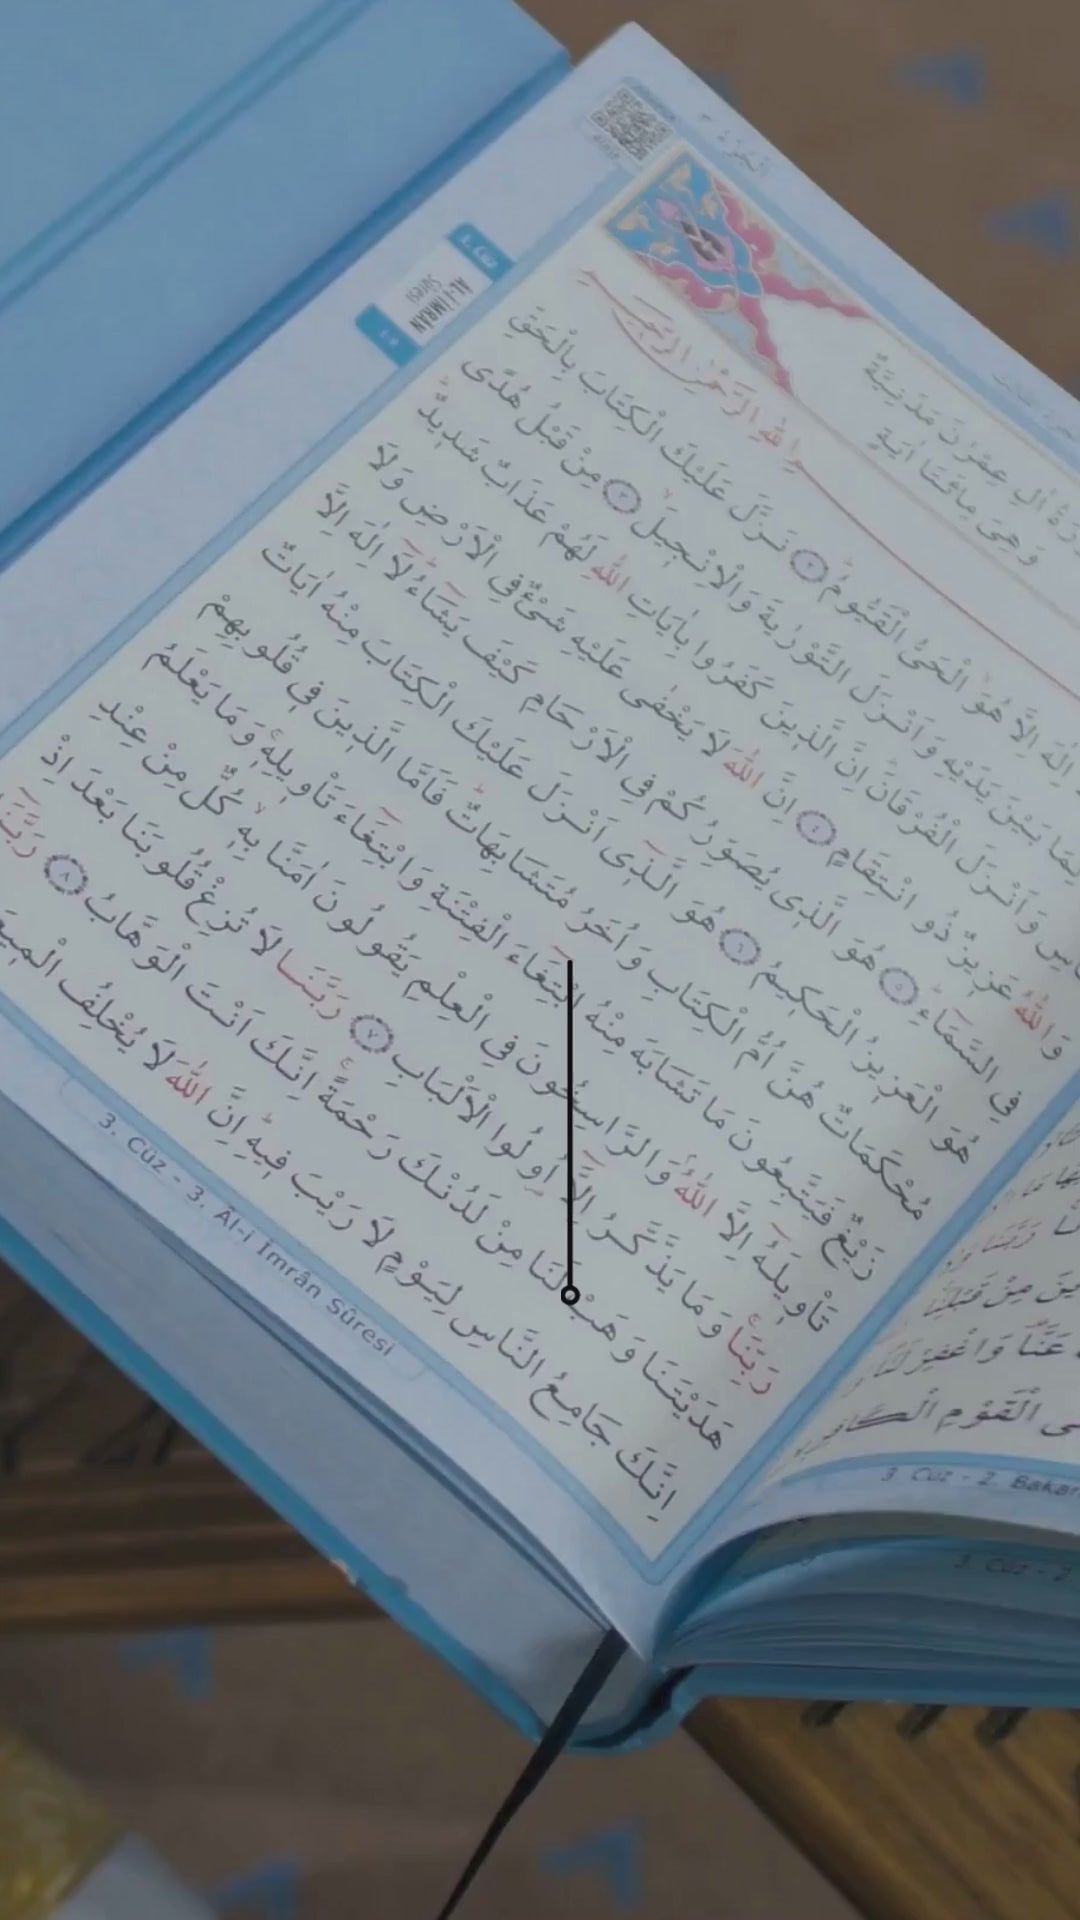 3. Cüz
ÂL-İ İMRÂN
Sûresi
عِمْرٰنَ مَدَنِيَّةٌ
وَهِىَ مِائَتَا اٰيَةٍ
اللّٰهِ الرَّحْمٰنِ الرَّحٖيمِ
اِلٰهَ اِلَّا هُوَ الْحَىُّ الْقَيُّومُ ﴿٢﴾ نَزَّلَ عَلَيْكَ الْكِتَابَ بِالْحَقِّ
لِمَا بَيْنَ يَدَيْهِ وَاَنْزَلَ التَّوْرٰيةَ وَالْاِنْجٖيلَ ﴿٣﴾ مِنْ قَبْلُ هُدًى
وَاَنْزَلَ الْفُرْقَانَ اِنَّ الَّذٖينَ كَفَرُوا بِاٰيَاتِ اللّٰهِ لَهُمْ عَذَابٌ شَدٖيدٌ
وَاللّٰهُ عَزٖيزٌ ذُو انْتِقَامٍ ﴿٤﴾ اِنَّ اللّٰهَ لَا يَخْفٰى عَلَيْهِ شَىْءٌ فِى الْاَرْضِ وَلَا
فِى السَّمَٓاءِ ﴿٥﴾ هُوَ الَّذٖى يُصَوِّرُكُمْ فِى الْاَرْحَامِ كَيْفَ يَشَٓاءُ لَٓا اِلٰهَ اِلَّا
هُوَ الْعَزٖيزُ الْحَكٖيمُ ﴿٦﴾ هُوَ الَّذٖٓى اَنْزَلَ عَلَيْكَ الْكِتَابَ مِنْهُ اٰيَاتٌ
مُحْكَمَاتٌ هُنَّ اُمُّ الْكِتَابِ وَاُخَرُ مُتَشَابِهَاتٌ فَاَمَّا الَّذٖينَ فٖى قُلُوبِهِمْ
زَيْغٌ فَيَتَّبِعُونَ مَا تَشَابَهَ مِنْهُ ابْتِغَٓاءَ الْفِتْنَةِ وَابْتِغَٓاءَ تَاْوٖيلِهٖ وَمَا يَعْلَمُ
تَاْوٖيلَهُٓ اِلَّا اللّٰهُ وَالرَّاسِخُونَ فِى الْعِلْمِ يَقُولُونَ اٰمَنَّا بِهٖ كُلٌّ مِنْ عِنْدِ
رَبِّنَا وَمَا يَذَّكَّرُ اِلَّٓا اُولُوا الْاَلْبَابِ ﴿٧﴾ رَبَّنَا لَا تُزِغْ قُلُوبَنَا بَعْدَ اِذْ
هَدَيْتَنَا وَهَبْ لَنَا مِنْ لَدُنْكَ رَحْمَةً اِنَّكَ اَنْتَ الْوَهَّابُ ﴿٨﴾ رَبَّنَٓا
اِنَّكَ جَامِعُ النَّاسِ لِيَوْمٍ لَا رَيْبَ فٖيهِ اِنَّ اللّٰهَ لَا يُخْلِفُ الْمٖيعَادَ
3. Cüz - 3. Âl-i İmrân Sûresi
عَنَّا وَاغْفِرْ لَنَا
الْقَوْمِ
3. Cüz - 2. Bakar
3. Cüz - 2